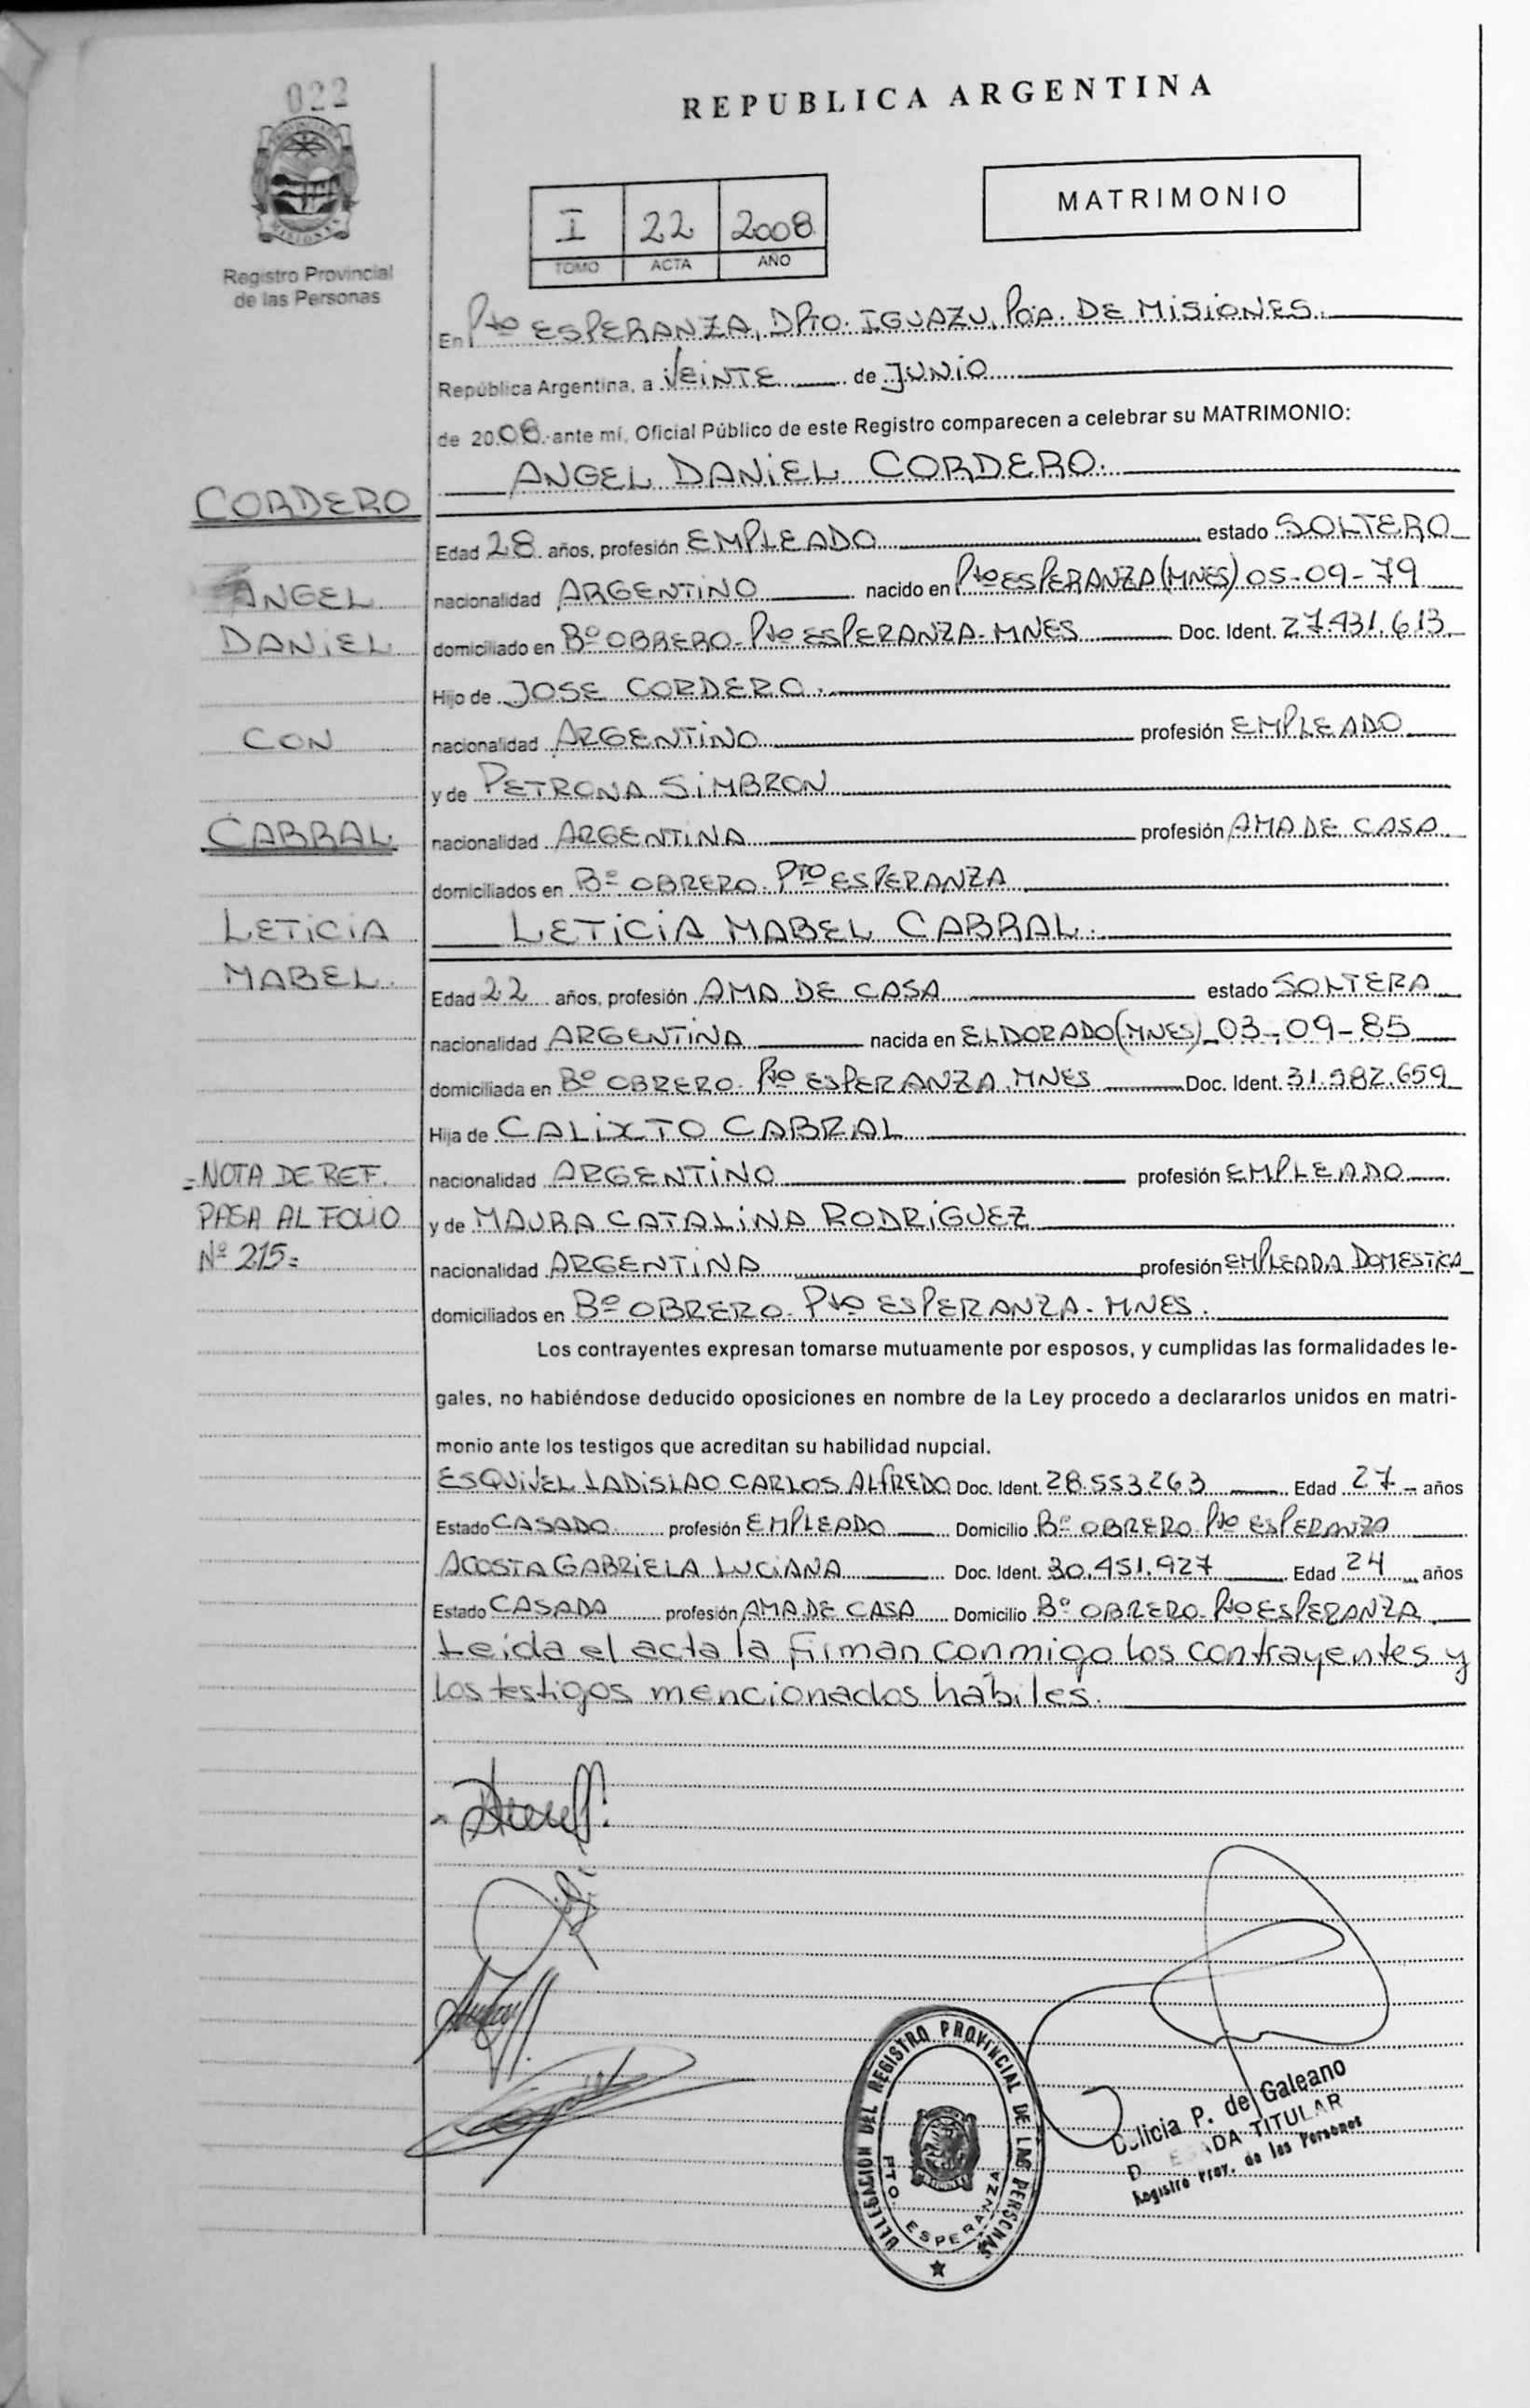 022
REPUBLICA ARGENTINA
MATRIMONIO
I 22 2008
TOMO ACTA AÑO
Registro Provincial
de las Personas
En Pto ESPERANZA, DPTO. IGUAZU, PCIA. DE MISIONES.
República Argentina, a VEINTE de JUNIO
de 2008 ante mí, Oficial Público de este Registro comparecen a celebrar su MATRIMONIO:
ANGEL DANIEL CORDERO.
CORDERO
ANGEL
DANIEL
CON
CABRAL
LETICIA
MABEL.
=NOTA DE REF.
PASA AL FOLIO
Nº 215=
Edad 28 años, profesión EMPLEADO estado SOLTERO
nacionalidad ARGENTINO nacido en Pto ESPERANZA (MNES) 05-09-79
domiciliado en Bº OBRERO- Pto ESPERANZA- MNES Doc. Ident. 27.431.613
Hijo de JOSE CORDERO.
nacionalidad ARGENTINO profesión EMPLEADO
y de PETRONA SIMBRON
nacionalidad ARGENTINA profesión AMA DE CASA
domiciliados en Bº OBRERO. PTO ESPERANZA
LETICIA MABEL CABRAL.
Edad 22 años, profesión AMA DE CASA estado SOLTERA
nacionalidad ARGENTINA nacida en ELDORADO (MNES) 03-09-85
domiciliada en Bº OBRERO- Pto ESPERANZA. MNES Doc. Ident. 31.982.659
Hija de CALIXTO CABRAL
nacionalidad ARGENTINO profesión EMPLEADO
y de MAURA CATALINA RODRIGUEZ
nacionalidad ARGENTINA profesión EMPLEADA DOMESTICA
domiciliados en Bº OBRERO- Pto ESPERANZA- MNES.
Los contrayentes expresan tomarse mutuamente por esposos, y cumplidas las formalidades le-
gales, no habiéndose deducido oposiciones en nombre de la Ley procedo a declararlos unidos en matri-
monio ante los testigos que acreditan su habilidad nupcial.
ESQUIVEL LADISLAO CARLOS ALFREDO Doc. Ident. 28.553.263 Edad 27 años
Estado CASADO profesión EMPLEADO Domicilio Bº OBRERO- Pto ESPERANZA
ACOSTA GABRIELA LUCIANA Doc. Ident. 30.451.927 Edad 24 años
Estado CASADA profesión AMA DE CASA Domicilio Bº OBRERO- Pto ESPERANZA.
Leida el acta la firman conmigo los contrayentes y
los testigos mencionados habiles.
DELEGACION DEL REGISTRO PROVINCIAL DE LAS PERSONAS
PTO ESPERANZA
P. de Galeano
TITULAR
Registro Prov. de las Personas